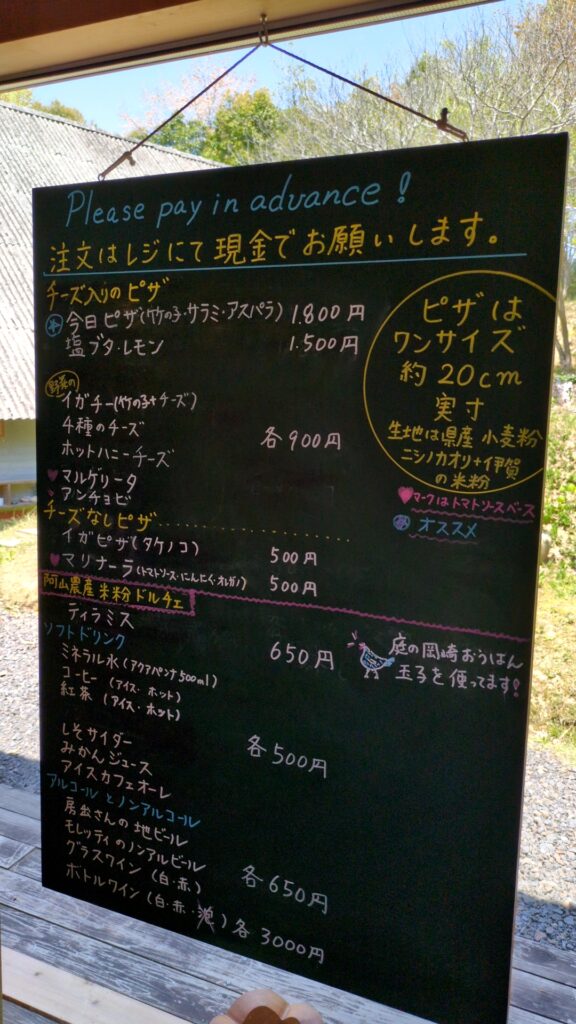 Please pay in advance!
注文はレジにて現金でお願いします。
チーズ入りのピザ
今日ピザ(竹の子・サラミ・アスパラ) 1.800円
塩ブタ・レモン 1.500円
野菜の
イガチー(竹の子+チーズ)
4種のチーズ
ホットハニーチーズ
各900円
マルゲリータ
アンチョビ
ピザは
ワンサイズ
約20cm
実寸
生地は県産小麦粉
ニシノカオリ+伊賀
の米粉
♥マークはトマトソースベース
オススメ
チーズなしピザ
イガピザ(タケノコ) 500円
♥マリナーラ(トマトソース・にんにく・オレガノ) 500円
阿山農産米粉ドルチェ
ティラミス 650円
庭の岡崎おうはん
玉子を使ってます!
ソフトドリンク
ミネラル水(アクアパンナ500ml)
コーヒー(アイス・ホット)
紅茶(アイス・ホット)
各500円
しそサイダー
みかんジュース
アイスカフェオーレ
アルコールとノンアルコール
さんの地ビール
モレッティのノンアルビール
グラスワイン(白・赤)
各650円
ボトルワイン(白・赤・) 各3000円